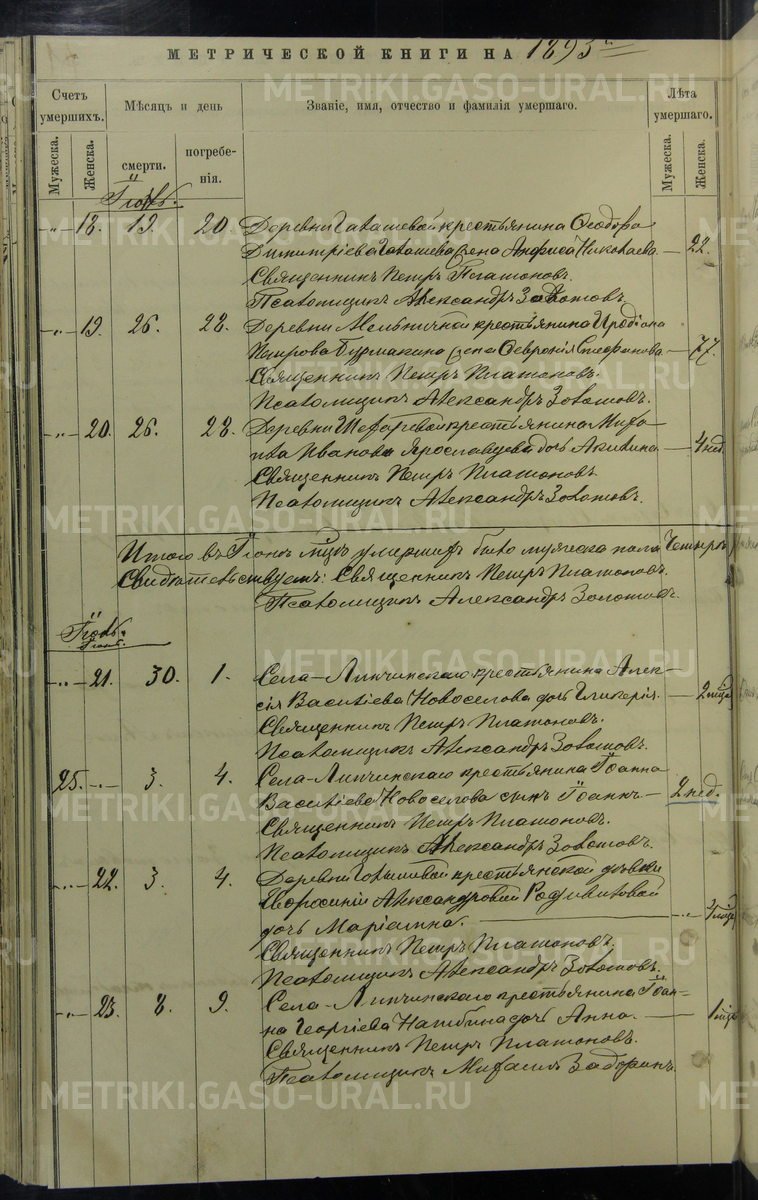 МЕТРИЧЕСКОЙ КНИГИ НА 1893
Счетъ умершихъ.
Мѣсяцъ и день
Званіе, имя, отчество и фамилія умершаго.
Лѣта умершаго.
Мужеска.
Женска.
смерти.
погребе-
нія.
Мужеска.
Женска.
Іюнь.
-„- 18. 19. 20. Деревни крестьянина Ѳеодора
Димитріева жена Анфиса Николаева. — 22.
Священникъ Петръ Платоновъ.
Псаломщикъ Александръ Золотовъ.
-„- 19 26. 28. Деревни Мельничной крестьянина Иродіона
Петрова Бурмакина жена Февронія Стефанова — 77.
Священникъ Петръ Платоновъ.
Псаломщикъ Александръ Золотовъ.
-„- 20. 26. 28. Деревни крестьянина
Иванова Ярославцева дочь Акилина — 4 нед.
Священникъ Петръ Платоновъ
Псаломщикъ Александръ Золотовъ.
Итого въ Іюнѣ м-цѣ умершихъ было мужеска пола Четыре
Свидѣтельствуемъ: Священникъ Петръ Платоновъ.
Псаломщикъ Александръ Золотовъ.
Іюль.
-„- 21. 30. 1. Села Липчинскаго крестьянина Алек-
сія Василіева Новоселова дочь Гликерія. — 2 мѣс
Священникъ Петръ Платоновъ.
Псаломщикъ Александръ Золотовъ.
25. -„- 3. 4. Села Липчинскаго крестьянина Іоанна
Василіева Новоселова сынъ Іоаннъ — 2 нед.
Священникъ Петръ Платоновъ.
Псаломщикъ Александръ Золотовъ.
-„- 22. 3. 4. Деревни крестьянской дѣвки
Александровой
дочь Маріамна. -„-
Священникъ Петръ Платоновъ.
Псаломщикъ Александръ Золотовъ.
-„- 23. 8. 9. Села Липчинскаго крестьянина Іоан-
на Георгіева дочь Анна. — 1 мѣс
Священникъ Петръ Платоновъ.
Псаломщикъ Михаилъ Задоринъ.
METRIKI.GASO-URAL.RU